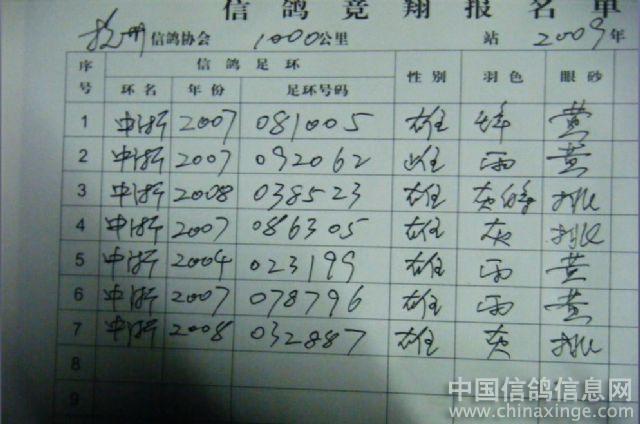 信鸽竞翔报名单
杭州信鸽协会 1000公里 站 2009年
序号 信鸽足环 性别 羽色 眼砂
环名 年份 足环号码
1 中浙 2007 081005 雄 绛 黄
2 中浙 2007 092062 雌 雨 黄
3 中浙 2008 038523 雄 灰 桃
4 中浙 2007 086305 雄 灰 桃
5 中浙 2004 023199 雄 雨 黄
6 中浙 2007 078796 雄 雨 黄
7 中浙 2008 032887 雄 灰 桃
8
9
中国信鸽信息网
www.chinaxinge.com